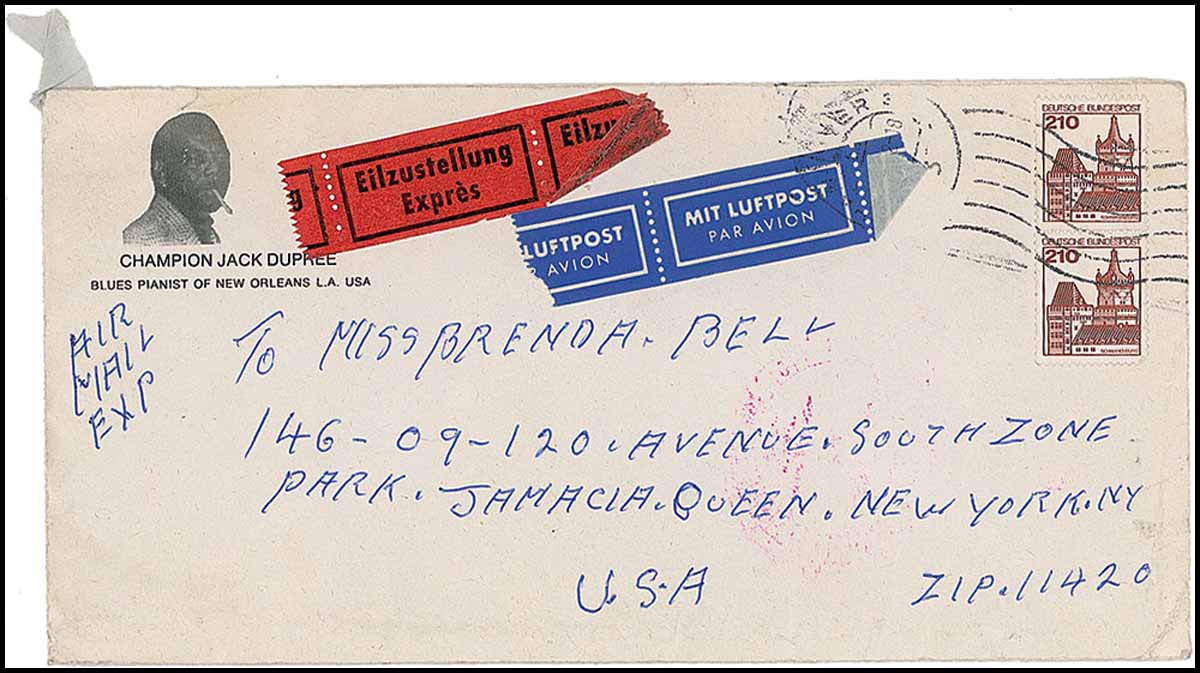 CHAMPION JACK DUPREE
BLUES PIANIST OF NEW ORLEANS L.A. USA
g
Eilzustellung
Exprès
Eilzu
LUFTPOST
AVION
MIT LUFTPOST
PAR AVION
DEUTSCHE BUNDESPOST
210
DEUTSCHE BUNDESPOST
210
AIR
MAIL
EXP
TO MISS BRENDA. BELL
146-09-120. AVENUE. SOUTH ZONE
PARK. JAMACIA. QUEEN. NEW YORK. NY
U.S.A
ZIP. 11420